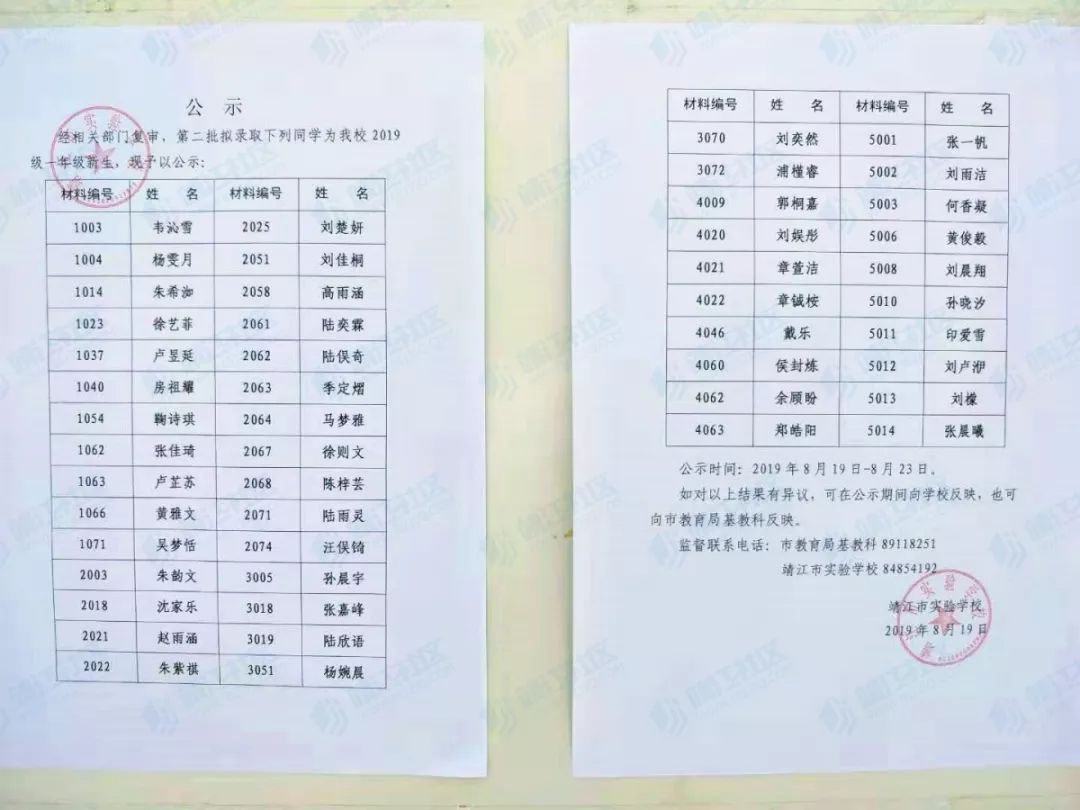 公 示
经相关部门复审，第二批拟录取下列同学为我校 2019
级一年级新生，现予以公示：
材料编号 姓 名 材料编号 姓 名
1003 韦沁雪 2025 刘楚妍
1004 杨雯月 2051 刘佳桐
1014 朱希洳 2058 高雨涵
1023 徐艺菲 2061 陆奕霖
1037 卢昱延 2062 陆俣奇
1040 房祖耀 2063 季定熠
1054 鞠诗琪 2064 马梦雅
1062 张佳琦 2067 徐则文
1063 卢芷苏 2068 陈梓芸
1066 黄雅文 2071 陆雨灵
1071 吴梦恬 2074 汪俣锜
2003 朱韵文 3005 孙晨宇
2018 沈家乐 3018 张嘉峰
2021 赵雨涵 3019 陆欣语
2022 朱紫祺 3051 杨婉晨
材料编号 姓 名 材料编号 姓 名
3070 刘奕然 5001 张一帆
3072 浦槿睿 5002 刘雨洁
4009 郭桐嘉 5003 何香凝
4020 刘娱彤 5006 黄俊毅
4021 章萱洁 5008 刘晨翔
4022 章铖桉 5010 孙晓汐
4046 戴乐 5011 印爱雪
4060 侯封炼 5012 刘卢洢
4062 余顾盼 5013 刘檬
4063 郑皓阳 5014 张晨曦
公示时间：2019 年 8 月 19 日-8 月 23 日。
如对以上结果有异议，可在公示期间向学校反映，也可
向市教育局基教科反映。
监督联系电话：市教育局基教科 89118251
靖江市实验学校 84854192
靖江市实验学校
2019 年 8 月 19 日